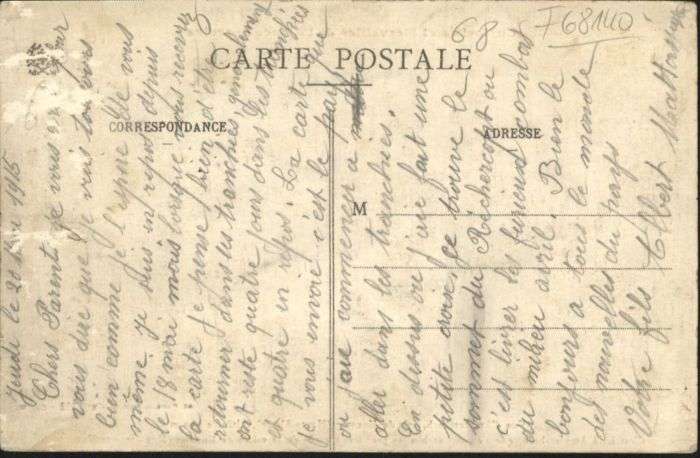 CARTE POSTALE
CORRESPONDANCE
ADRESSE
M
68
F68140
Jeudi le 20 Mai 1915
Chers Parent je vous pour
vous dire que je vais toujours
bien comme je l'espere elle vous
même je suis en repos depuis
le 18 mai mais lorsque vous recevrez
la carte je pense bien d'être
retourner dans les tranchées generalement
ont reste quatre jours dans les tranchées
et quatre en repos. La carte que
je vous envoie c'est le pays
ou ont commencer a
aller dans les tranchées.
En dessus ou j'ai fait une
petite croix, se trouve le
sommet du Reichercort ou
c'est livrer les furieux combat
du milieu avril. Bien le
bonjours a tous le monde
des nouvelles du pays
Votre fils Albert